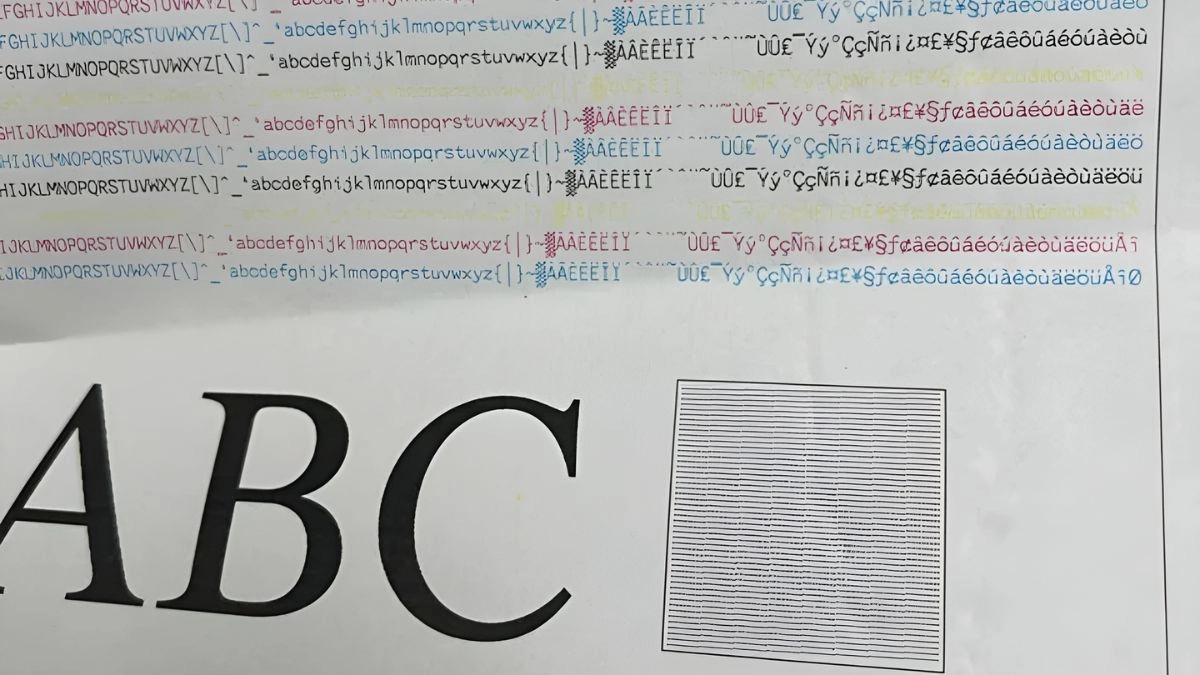 FGHIJKLMNOPQRSTUVWXYZ[\]
FGHIJKLMNOPQRSTUVWXYZ[\]^_‘abcdefghijklmnopqrstuvwxyz{|}~▒ÀÂÈÊËÎÏ´`^¨~ÙÛ£¯Ýý°ÇçÑñ¡¿¤£¥§ƒ¢âêôûáéóúàèò
FGHIJKLMNOPQRSTUVWXYZ[\]^_‘abcdefghijklmnopqrstuvwxyz{|}~▒ÀÂÈÊËÎÏ´`^¨~ÙÛ£¯Ýý°ÇçÑñ¡¿¤£¥§ƒ¢âêôûáéóúàèòù
GHIJKLMNOPQRSTUVWXYZ[\]^_‘abcdefghijklmnopqrstuvwxyz{|}~▒ÀÂÈÊËÎÏ´`^¨~ÙÛ£¯Ýý°ÇçÑñ¡¿¤£¥§ƒ¢âêôûáéóúàèòùäë
HIJKLMNOPQRSTUVWXYZ[\]^_‘abcdefghijklmnopqrstuvwxyz{|}~▒ÀÂÈÊËÎÏ´`^¨~ÙÛ£¯Ýý°ÇçÑñ¡¿¤£¥§ƒ¢âêôûáéóúàèòùäëö
HIJKLMNOPQRSTUVWXYZ[\]^_‘abcdefghijklmnopqrstuvwxyz{|}~▒ÀÂÈÊËÎÏ´`^¨~ÙÛ£¯Ýý°ÇçÑñ¡¿¤£¥§ƒ¢âêôûáéóúàèòùäëöü
IJKLMNOPQRSTUVWXYZ[\]^_‘abcdefghijklmnopqrstuvwxyz{|}~▒ÀÂÈÊËÎÏ´`^¨~ÙÛ£¯Ýý°ÇçÑñ¡¿¤£¥§ƒ¢âêôûáéóúàèòùäëöüÅî
IJKLMNOPQRSTUVWXYZ[\]^_‘abcdefghijklmnopqrstuvwxyz{|}~▒ÀÂÈÊËÎÏ´`^¨~ÙÛ£¯Ýý°ÇçÑñ¡¿¤£¥§ƒ¢âêôûáéóúàèòùäëöüÅîØ
ABC